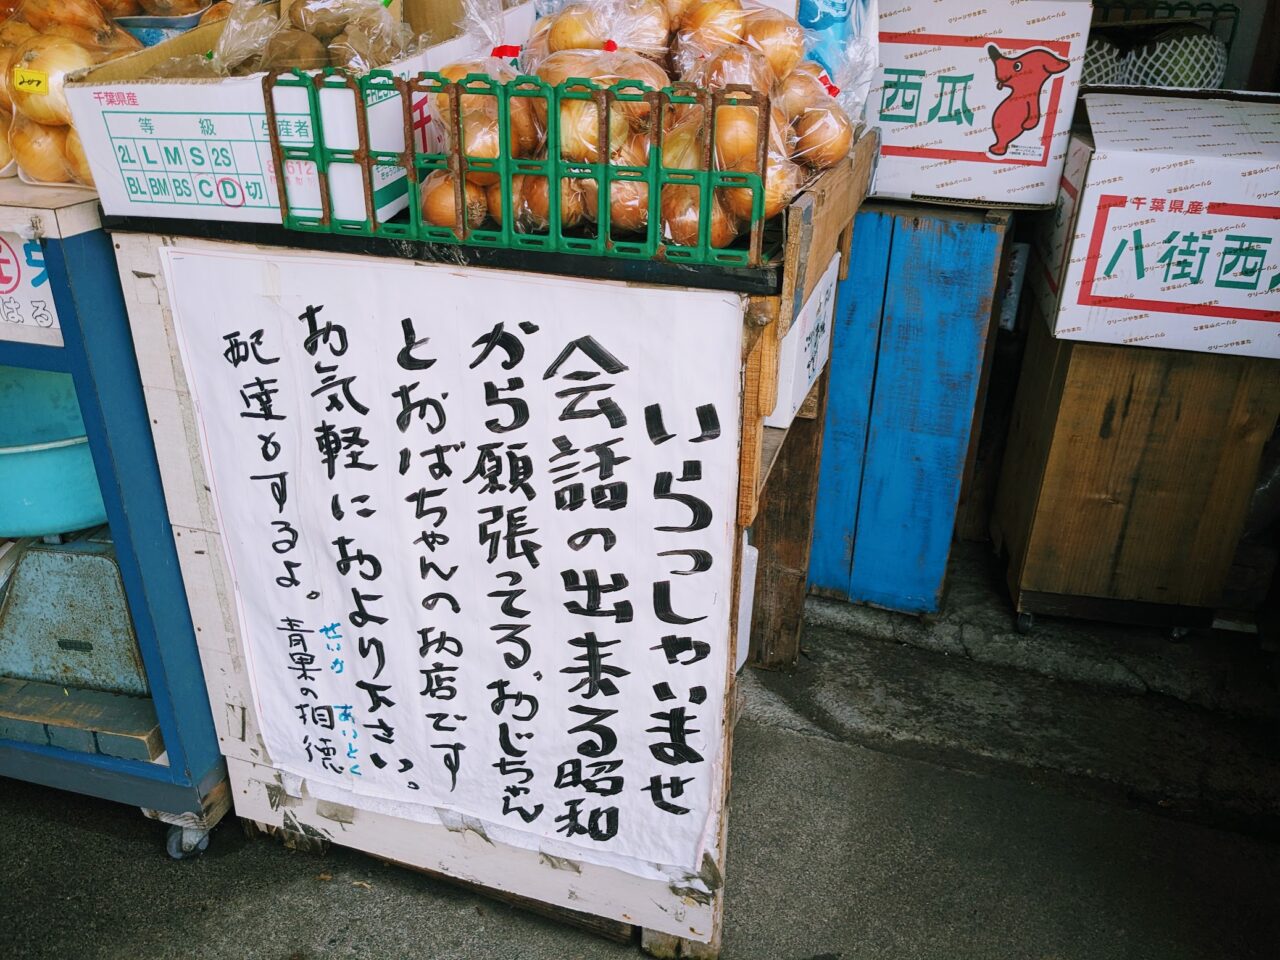 いらっしゃいませ
会話の出来る昭和
から願張てる、おじちゃん
とおばちゃんのお店です
お気軽におより下さい。
配達もするよ。
青果の相徳
せいか
あいとく
千葉県産
等級
生産者
2L L M S 2S
BL BM BS C D 切
西瓜
クリーンやちまた
なまぢゅーしー
千葉県産
八街西
はる